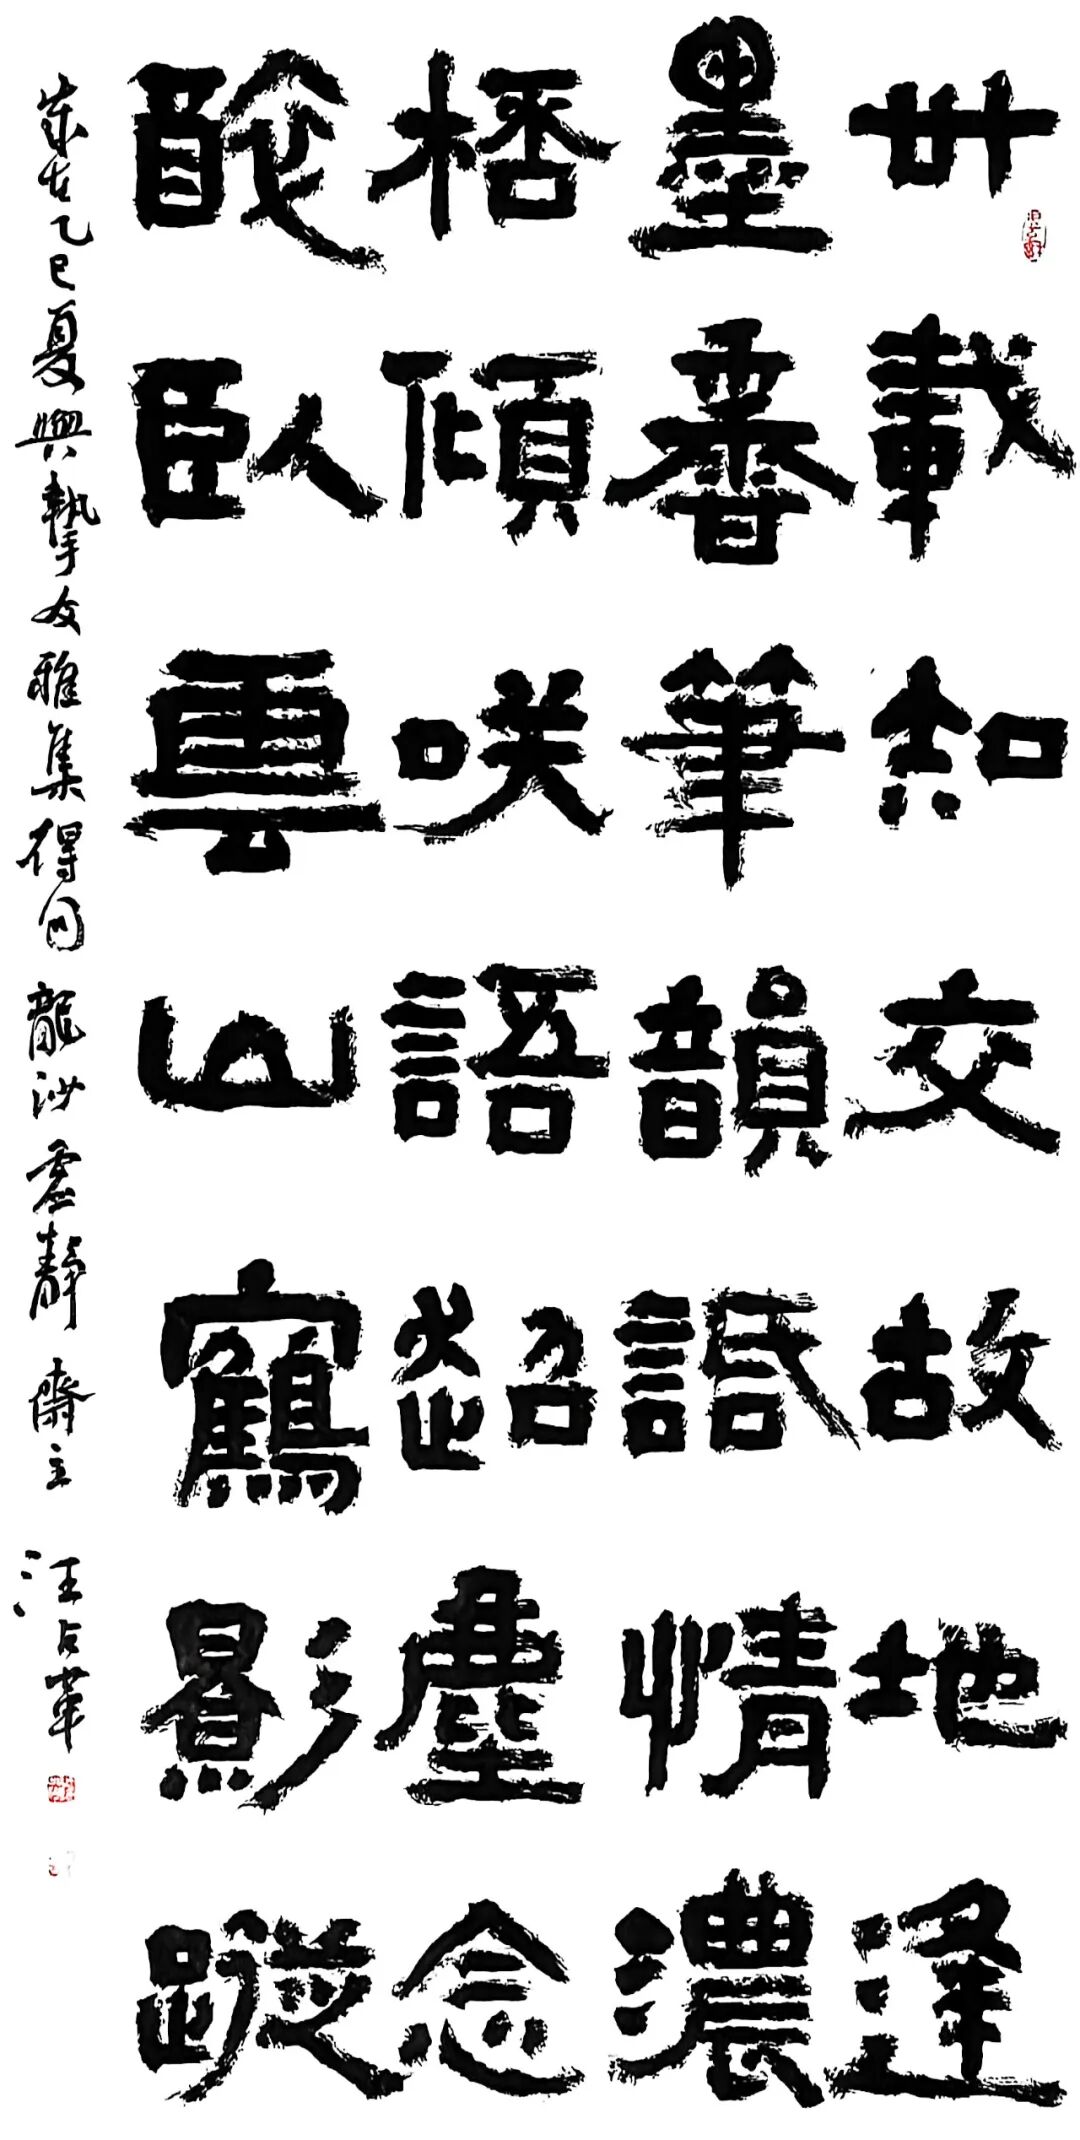 卅載知交故地逢
墨香筆韻話情濃
桮傾咲語超塵念
臥雲山鶴影蹤
歲在乙巳夏與摯友雅集得句龍沙虛靜齋主汪占革